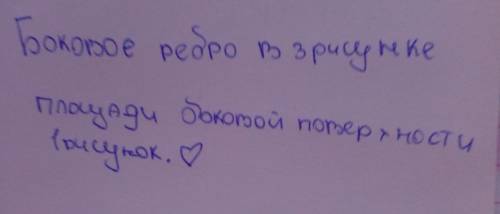 Боковое ребро в 3 рисунке
площади боковой поверхности
1 рисунок. ♡